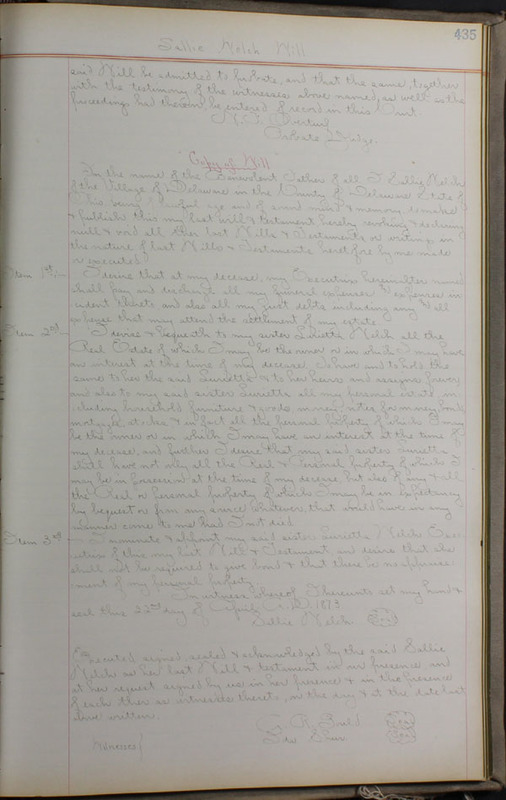 435
Sallie Welch Will
said Will be admitted to probate, and that the same, together
with the testimony of the witnesses above named, as well as the
proceedings had therein be entered of record in this Court.
Probate Judge.
"Copy of Will"
In the name of the Benevolent Father of all. I Sallie Welch
of the Village of Delaware in the County of Delaware State of
Ohio being lawful age and of sound mind & memory do make
& publish this my last will & testament hereby revoking & declaring
null & void all other last Wills & Testaments or writing in
the nature of last Wills & Testaments heretofore by me made
or executed
Item 1st
I desire that at my decease, my Executrix hereinafter named
shall pay and discharge all my funeral expenses & expenses in-
cident thereto and also all my just debts including any & all
expenses that may attend the settlement of my estate.
Item 2nd
I devise & bequeath to my sister Luzetta Welch all the
Real Estate of which I may be the owner or in which I may have
an interest at the time of my decease, to have and to hold the
same to her the said Luzetta & to her heirs and assigns forever
and also to my said sister Luzetta all my personal estate in-
cluding household furniture & goods, money, notes for money, bonds
mortgages, stocks, & in fact all the personal property of which I may
be the owner or in which I may have an interest at the time of
my decease, and further I desire that my said sister Luzetta
shall have not only all the Real & Personal property of which I
may be in possession at the time of my decease but also of any & all
the Real or personal property of which I may be in expectancy
by bequest or from any source whatever, that would have in any
manner come to me had I not died.
Item 3rd
I nominate & appoint my said sister Luzetta Welch Exe-
cutrix of this my last Will & Testament, and desire that she
shall not be required to give bond & that there be no appraise-
ment of my personal property.
In witness whereof I hereunto set my hand &
seal this 22nd day of April A.D. 1873
Sallie Welch
Executed signed, sealed & acknowledged by the said Sallie
Welch as her last Will & testament in our presence and
at her request signed by us in her presence & in the presence
of each other as witnesses thereto, on the day & at the date last
above written.
Witnesses